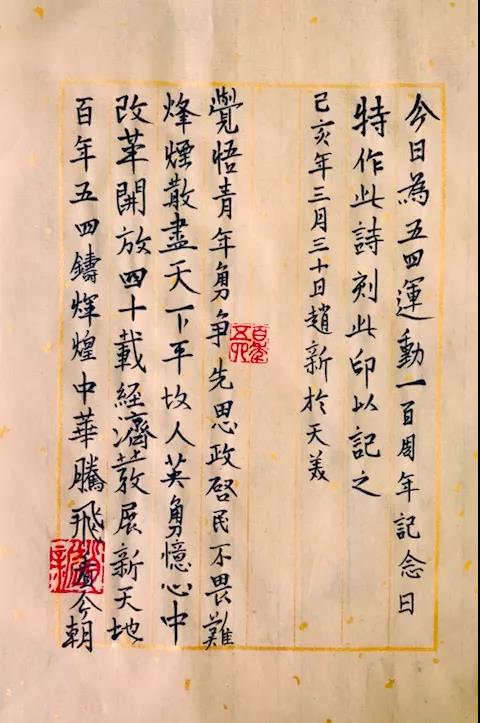 今日為五四運動一百周年記念日
特作此詩刻此印以記之
己亥年三月三十日趙新於天美
百年五四
覺悟青年勇争先思政啓民不畏難
烽煙散盡天下平故人英勇憶心中
改革開放四十載經濟發展新天地
百年五四鑄煇煌中華騰飛看今朝